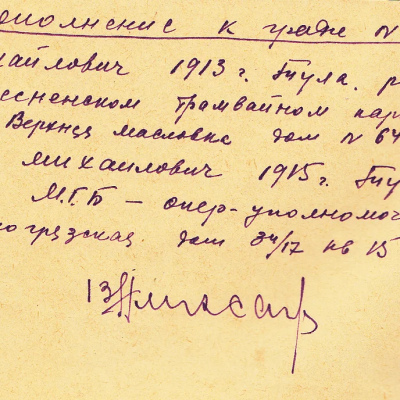 ополнение к графе N
хайлович 1913 г. Тула. р
есненском трамвайном пар
Верхняя масловка дом N 64
михаилович 1915 г. Ту
М.Г.Б – опер-уполномоч
огрузская дом 34/17 кв 15